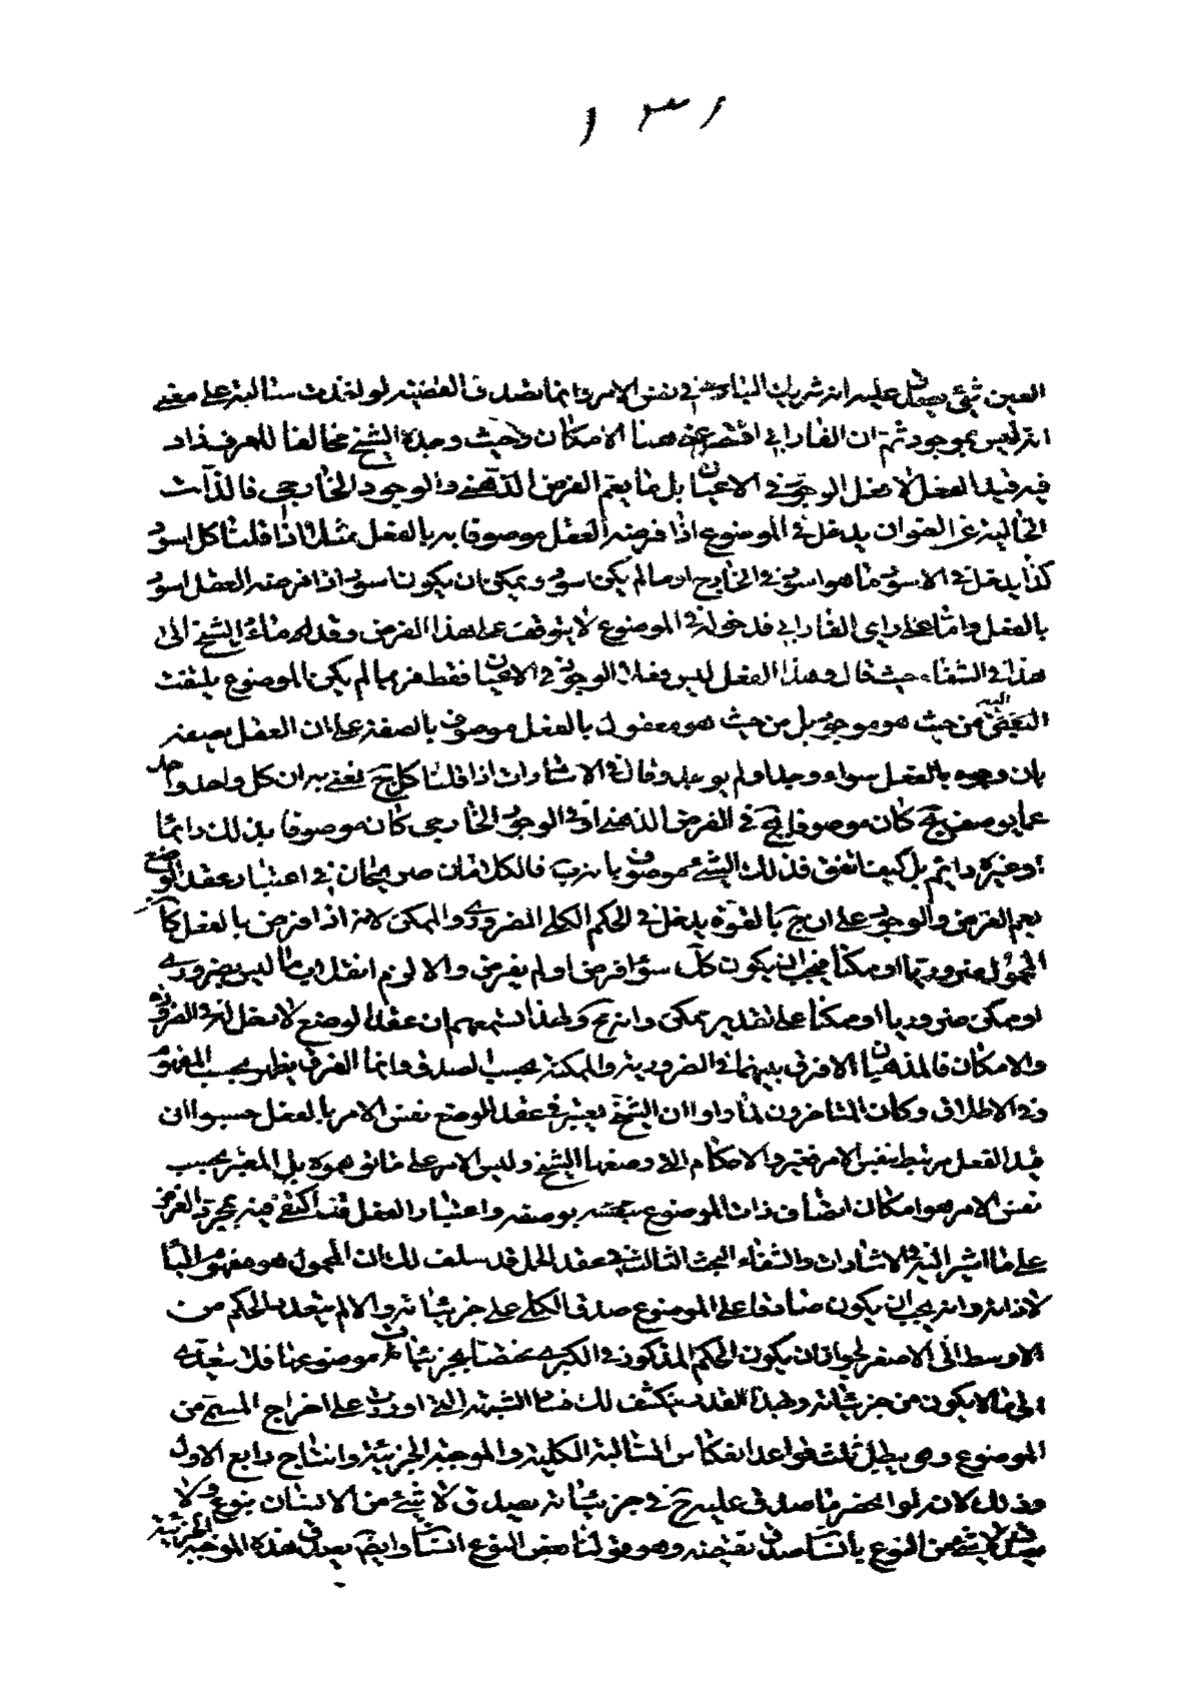 ١٣١
العين شئ يصدق عليه انه شريك البارى فى نفس الامر وانما تصدق القضية لو اخذت سالبة على معنى
انه ليس بموجود ثم ان الفارابى اقتصر على هذا الامكان وحيث وجده الشيخ مخالفا للعرف زاد
فيه قيد الفعل لا فعل الوجود فى الاعيان بل ما يعم الفرض الذهنى والوجود الخارجى فالذات
الخالية عن العنوان يدخل فى الموضوع اذا فرضه العقل موصوفا به بالفعل مثلا اذا قلنا كل اسود
كذا يدخل فى الاسود ما هو اسود فى الخارج او ما لم يكن اسود ويمكن ان يكون اسود اذا فرضه العقل اسود
بالفعل واما على راى الفارابى فدخوله فى الموضوع لا يتوقف على هذا الفرض وقد اومأ الشيخ الى
هذا فى الشفاء حيث قال وهذا الفعل ليس فعل الوجود فى الاعيان فقط فربما لم يكن الموضوع يلتفت
اليه من حيث هو موجود بل من حيث هو معقول بالفعل موصوف بالصفة على ان العقل يصفه
بان وجوده بالفعل سواء وجد او لم يوجد وقال فى الاشارات اذا قلنا كل ج نعنى به ان كل واحد واحد
مما يوصف بج كان موصوفا بج فى الفرض الذهنى او فى الوجود الخارجى كان موصوفا بذلك دائما
او غير دائم بل كيف اتفق فذلك الشئ موصوف بانه ب فالكلامان صريحان فى اعتبار عقد الوضع
يعم الفرض والوجود على ان ج بالقوة يدخل فى الحكم الكلى الضرورى والممكن لانه اذا فرض بالفعل كان
المحمول ضروريا او ممكنا فيجب ان يكون كل سواء فرض او لم يفرض والا لزم انقلاب ما ليس بضرورى
او ممكن ضروريا او ممكنا على تقدير ممكن وانه مح ولهذا تسمعهم ان عقد الوضع لا دخل له فى الضرورة
والامكان فالمذهبان لا فرق بينهما فى الضرورية والممكنة بحسب الصدق وانما الفرق يظهر بحسب المفهوم
وفى الاطلاق وكان المتاخرون لما راوا ان الشيخ يعتبر فى عقد الوضع نفس الامر بالفعل حسبوا ان
هذا الفعل مرتبط بنفس الامر فغيروا الاحكام التى وصفها الشيخ وليس الامر على ما توهموه بل المعتبر بحسب
نفس الامر هو امكان اتصاف ذات الموضوع بوصفه واعتبار الفعل فقد اكتفى فيه بمجرد الفرض
على ما اشير اليه فى الاشارات والشفاء البحث الثالث فى عقد الحمل قد سلف لك ان المحمول هو مفهوم الباء
لا ذاته وانه يجب ان يكون صادقا على الموضوع صدق الكلى على جزئياته والا لم يتعد الحكم من
الاوسط الى الاصغر لجواز ان يكون الحكم المذكور فى الكبرى مختصا بجزئيات موضوعها فلا يتعدى
الى ما لا يكون من جزئياته وبهذا القدر ينكشف لك الشبهة التى اوردت على اخراج المسمى من
الموضوع وهى يبطل ثلث قواعد انعكاس السالبة الكلية والموجبة الجزئية وانتاج رابع الاول
وذلك لانه لو انحصر ما صدق عليه ج فى جزئياته يصدق لا شئ من الانسان بنوع ولا
يصدق لا شئ من النوع بانسان لصدق نقيضه وهو قولنا بعض النوع انسان وايضا يصدق هذه الموجبة الجزئية